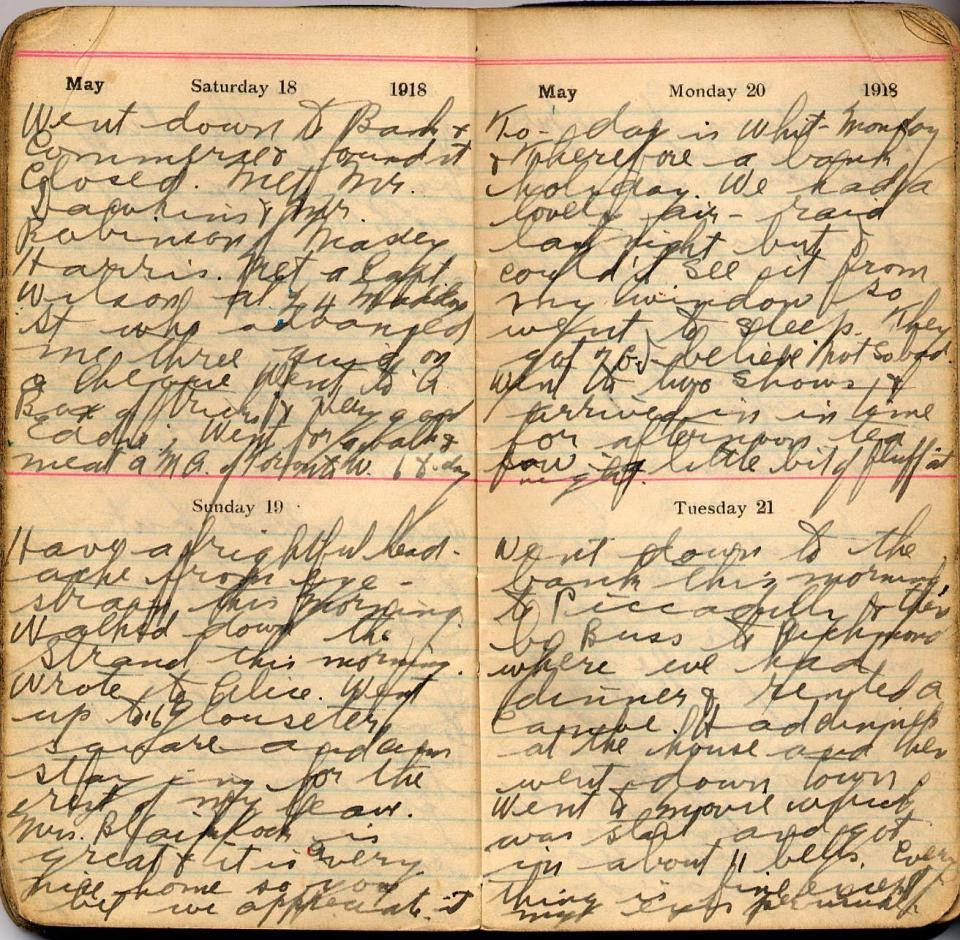 May Saturday 18 1918
Went down to Bank &
Commerse & found it
closed. Met Mr.
Dawkins & Mr.
Robinson of Massey
Harris. Met a Capt.
Wilson at 74
St who advanced
me three quid on
a cheque Went to "A
Box of Tricks" & very good
Eddie; Went for a walk &
meat a M.A. of
Sunday 19
Have a frightful head-
ache from eye-
strain this morning.
Walked down the
Strand this morning.
Wrote to Elice. Went
up to 69 Glouseter
square and am
staying for the
rest of my leave.
Mrs. is
great & it is a very
nice home so you
bet we appreciate it
May Monday 20 1918
To-day is Whit-Monday
& therefore a bank
holiday. We had a
lovely air-raid
last night but I
could'nt see it from
my window so
went to sleep. They
got 7 I believe not so bad.
Went to two shows &
arrived in in time
for afternoon tea
saw "a little bit of fluff" at
night.
Tuesday 21
Went down to the
bank this morning,
to Piccadilly & then
by Buss to Richmond
where we had
dinner & rented a
Canoe. Had dinner
at the house and then
went down town
Went to movie which
was and got
in about 11 bells. Every
thing is fine except
my